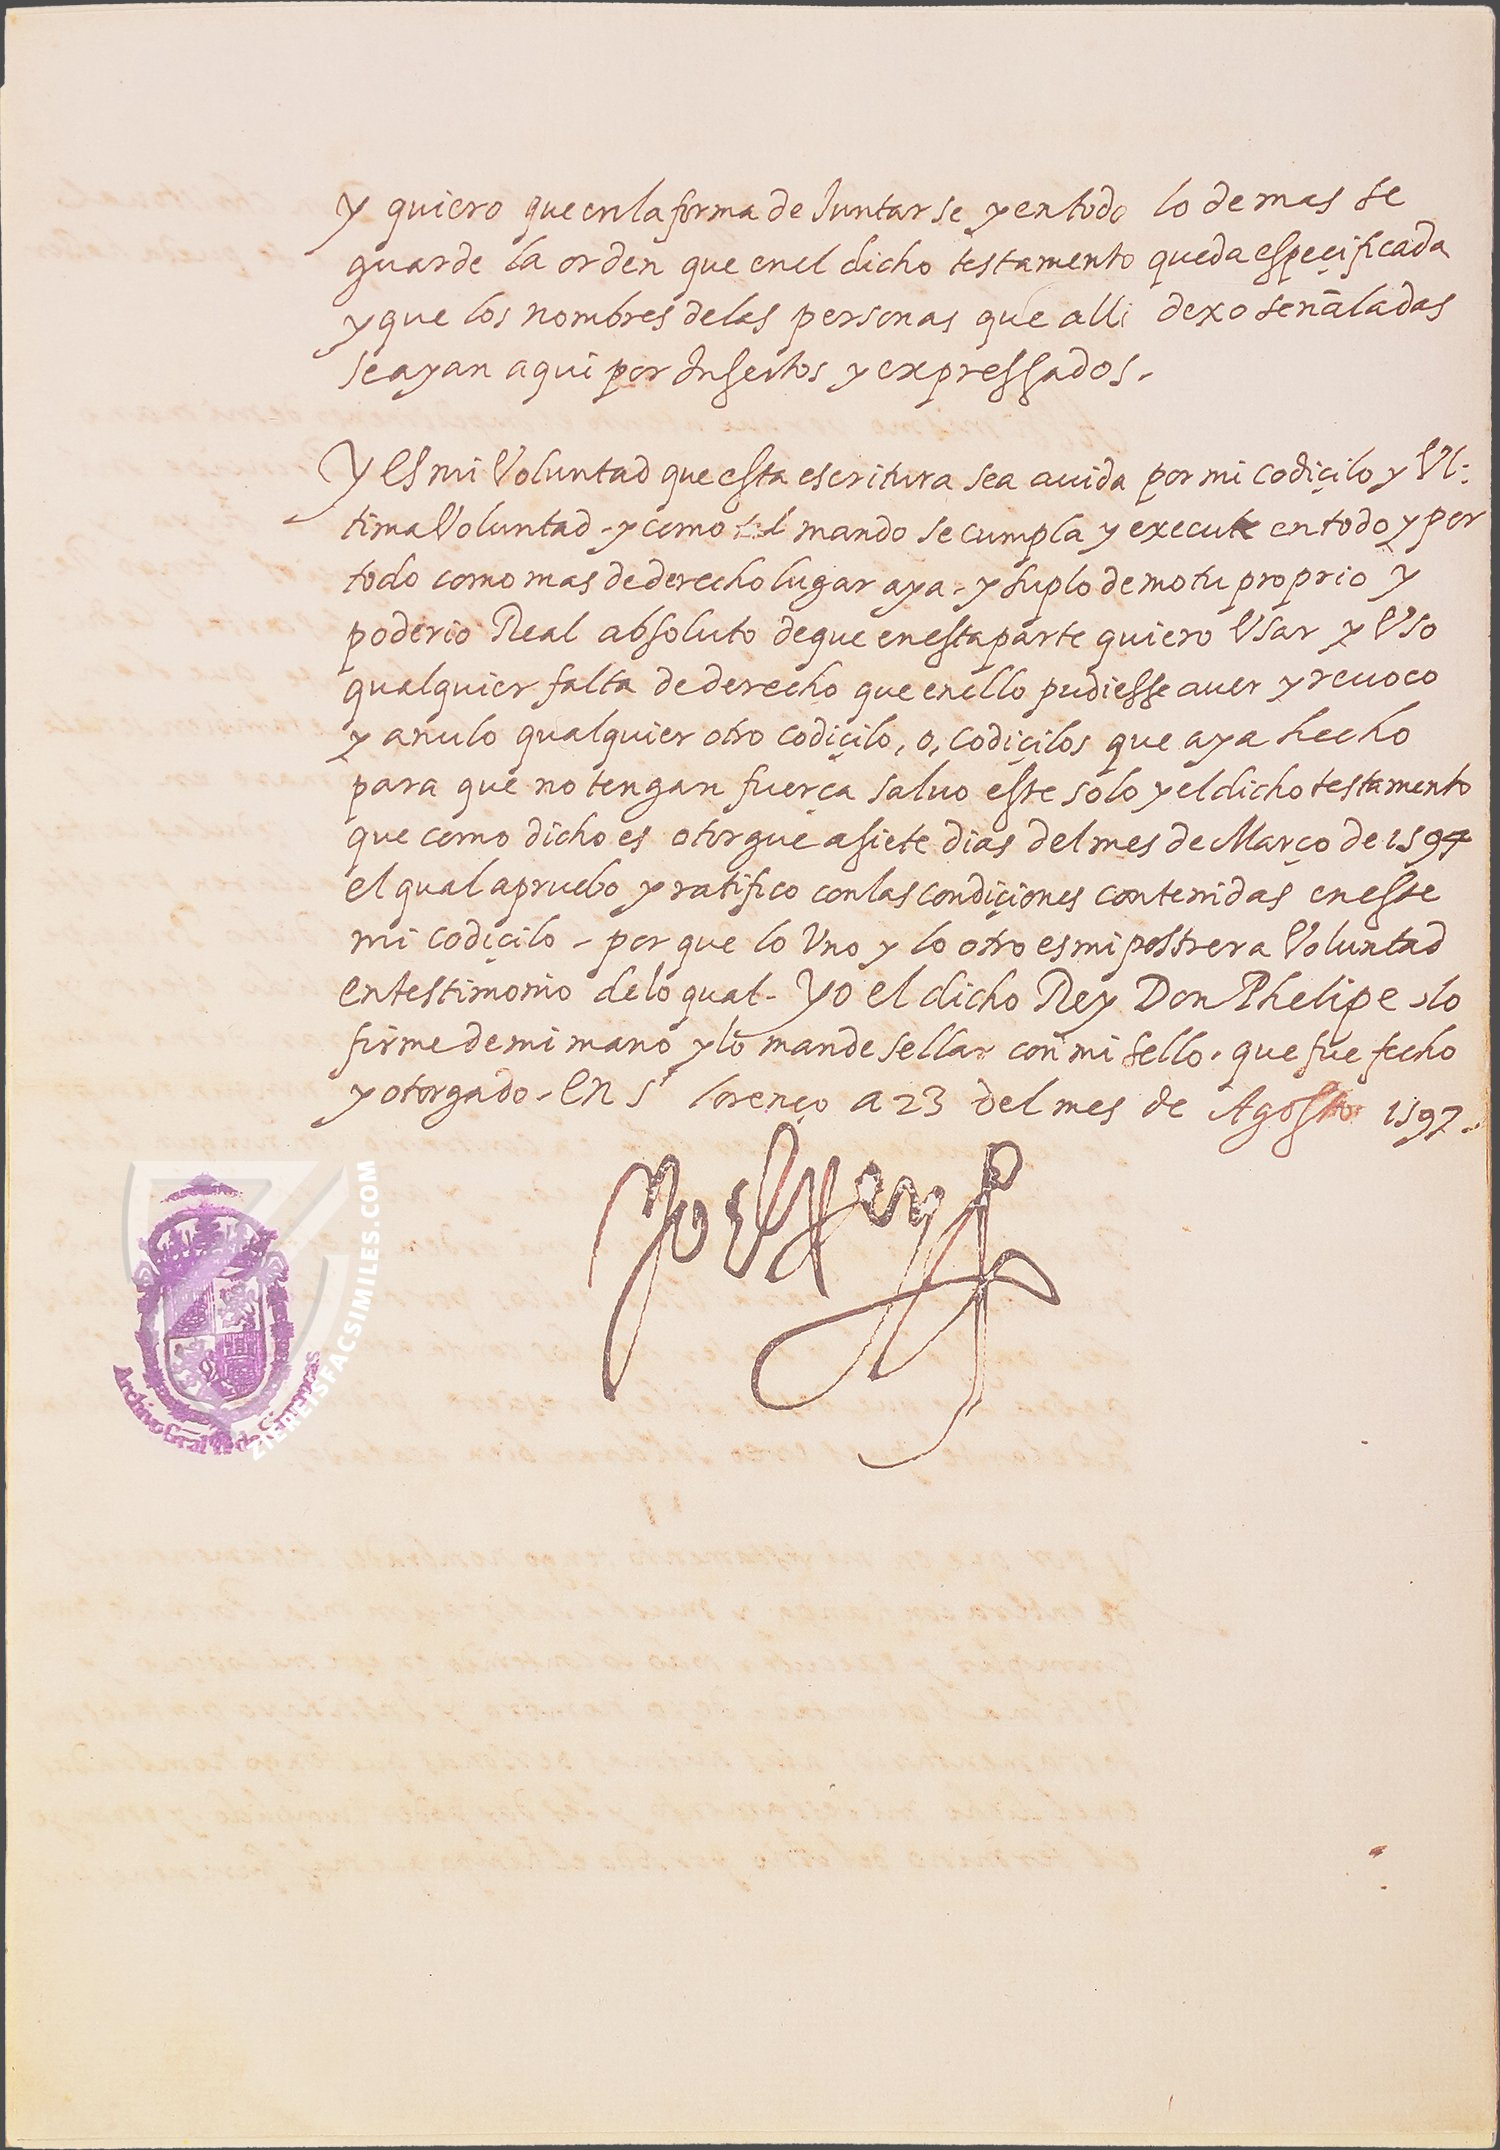 Y quiero que en la forma de Juntarse y en todo lo demas se
guarde la orden que en el dicho testamento queda especificada
y que los nombres de las personas que alli dexo señaladas
se ayan aqui por Insertos y expressados.
Y Es mi Voluntad que esta escritura sea auida por mi codiçilo y Vl-
tima Voluntad - y como tal mando se cumpla y execute en todo y por
todo como mas de derecho lugar aya - y suplo de motu proprio y
poderio Real absoluto de que en esta parte quiero Vsar y Vso
qualquier falta de derecho que en ello pudiesse auer y reuoco
y anulo qualquier otro codiçilo, o, codiçilos que aya hecho
para que no tengan fuerça saluo este solo y el dicho testamento
que como dicho es otorgue a siete dias del mes de Março de 1594
el qual apruebo y ratifico con las condiçiones contenidas en este
mi codiçilo - porque lo Vno y lo otro es mi postrera Voluntad
en testimonio de lo qual - Yo el dicho Rey Don Phelipe lo
firme de mi mano y lo mande sellar con mi sello. que fue fecho
y otorgado - En St Lorenço a 23 del mes de Agosto 1597.
Yo el Rey
Archivo Gral de Simancas
ZIEREISFACSIMILES.COM